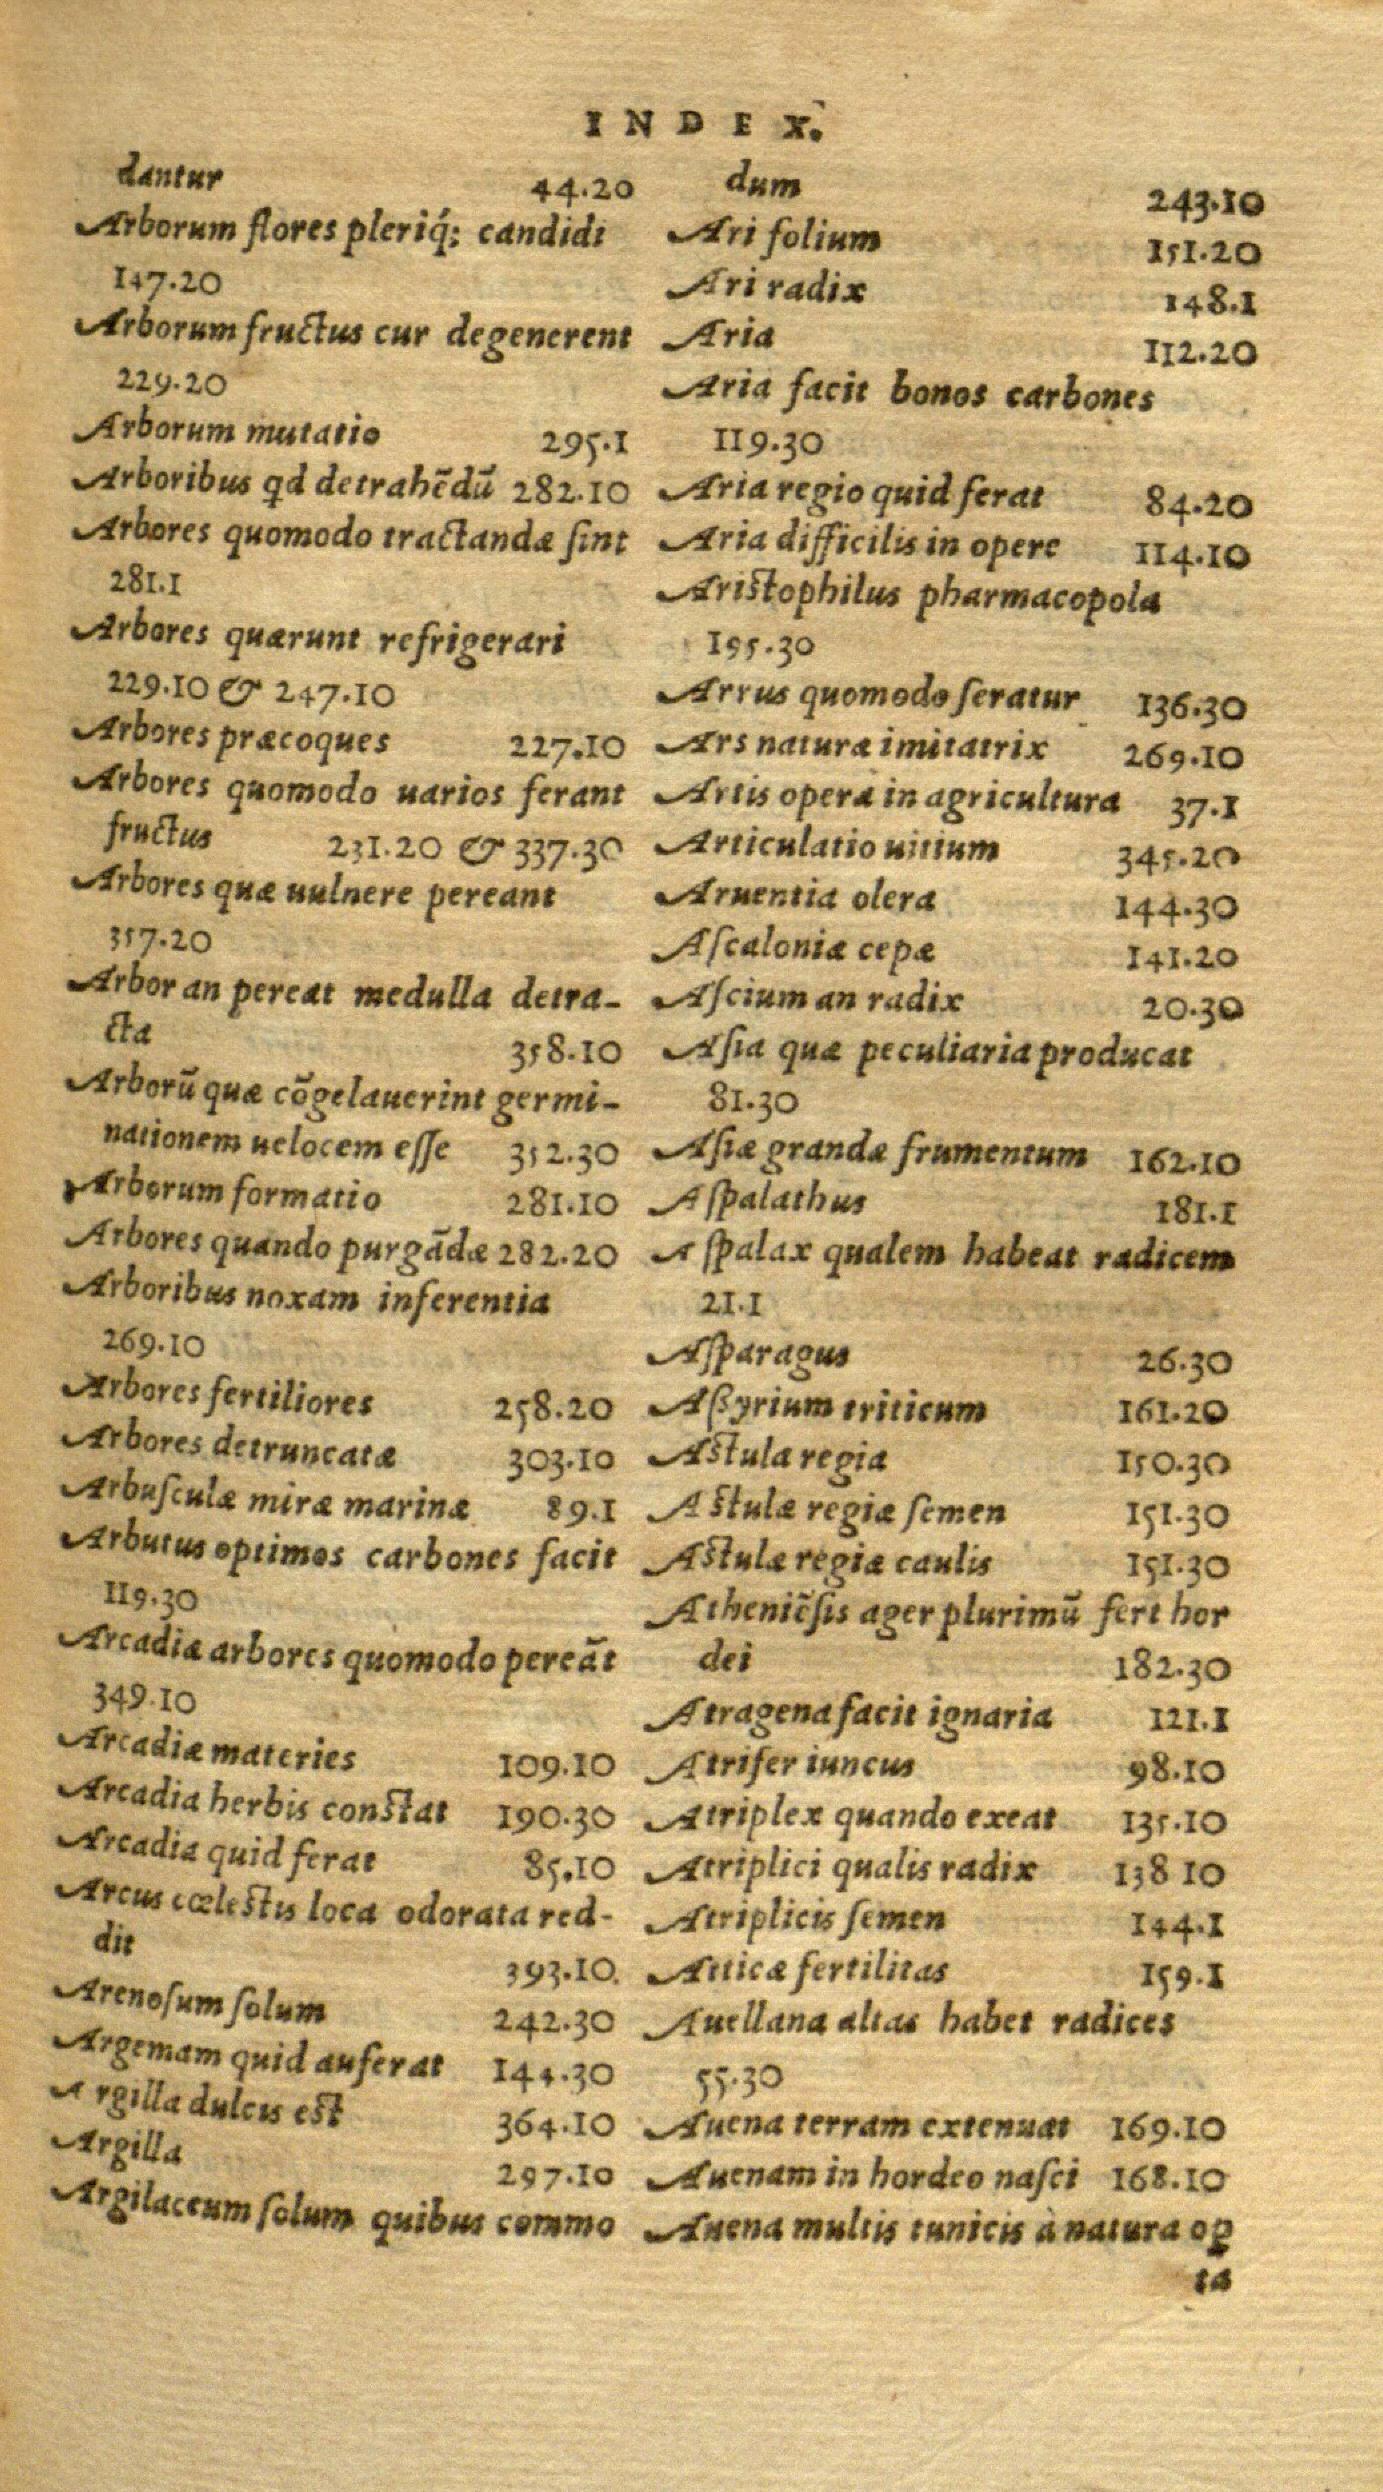 INDEX.
dantur 44.20
Arborum flores pleriq́; candidi
147.20
Arborum fructus cur degenerent
229.20
Arborum mutatio 295.1
Arboribus qd detrahēdū 282.10
Arbores quomodo tractandæ ſint
281.1
Arbores quærunt refrigerari
229.10 & 247.10
Arbores præcoques 227.10
Arbores quomodo uarios ferant
fructus 231.20 & 337.30
Arbores quæ uulnere pereant
357.20
Arbor an pereat medulla detra-
cta 358.10
Arborū quæ cōgelauerint germi-
nationem uelocem eſſe 352.30
Arborum formatio 281.10
Arbores quando purgādæ 282.20
Arboribus noxam inferentia
269.10
Arbores fertiliores 258.20
Arbores detruncatæ 303.10
Arbuſculæ miræ marinæ 89.1
Arbutus optimos carbones facit
119.30
Arcadiæ arbores quomodo pereāt
349.10
Arcadiæ materies 109.10
Arcadia herbis constat 190.30
Arcadia quid ferat 85.10
Arcus cœlestis loca odorata red-
dit 393.10.
Arenoſum ſolum 242.30
Argemam quid auferat 144.30
Argilla dulcis est 364.10
Argilla 297.10
Argilaceum ſolum quibus commo
dum 243.10
Ari folium 151.20
Ari radix 148.1
Aria 112.20
Aria facit bonos carbones
119.30
Aria regio quid ferat 84.20
Aria difficilis in opere 114.10
Aristophilus pharmacopola
195.30
Arrus quomodo ſeratur 136.30
Ars naturæ imitatrix 269.10
Artis opera in agricultura 37.1
Articulatio uitium 345.20
Aruentia olera 144.30
Aſcaloniæ cepæ 141.20
Aſcium an radix 20.30
Aſia quæ peculiaria producat
81.30
Aſiæ grandæ frumentum 162.10
Aſpalathus 181.1
Aſpalax qualem habeat radicem
21.1
Aſparagus 26.30
Aßyrium triticum 161.20
Astula regia 150.30
Astulæ regiæ ſemen 151.30
Astulæ regiæ caulis 151.30
Atheniēſis ager plurimū fert hor
dei 182.30
Atragena facit ignaria 121.1
Atrifer iuncus 98.10
Atriplex quando exeat 135.10
Atriplici qualis radix 138 10
Atriplicis ſemen 144.1
Atticæ fertilitas 159.1
Auellana altas habet radices
55.30
Auena terram extenuat 169.10
Auenam in hordeo naſci 168.10
Auena multis tunicis à natura op
ta